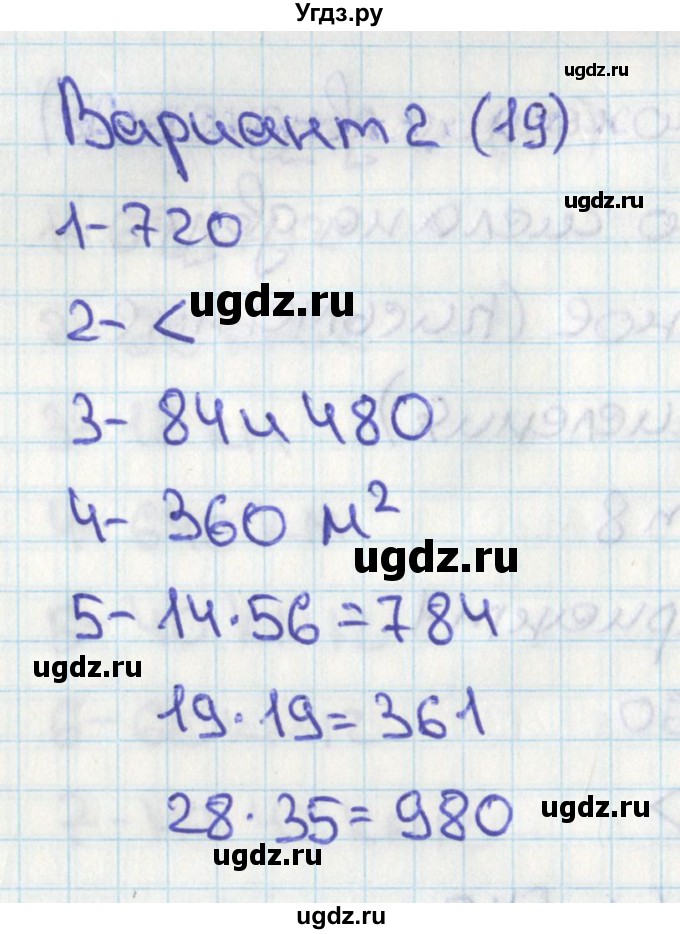 Угдз.ру
ugdz.ru
Вариант 2 (19)
ugdz.ru
1- 720
ugdz.ru
2- <
3- 84 и 480
4- 360 м²
ugdz.ru
5- 14·56=784
ugdz.ru
19·19=361
28·35=980
ugdz.ru
ugdz.ru
ugdz.ru